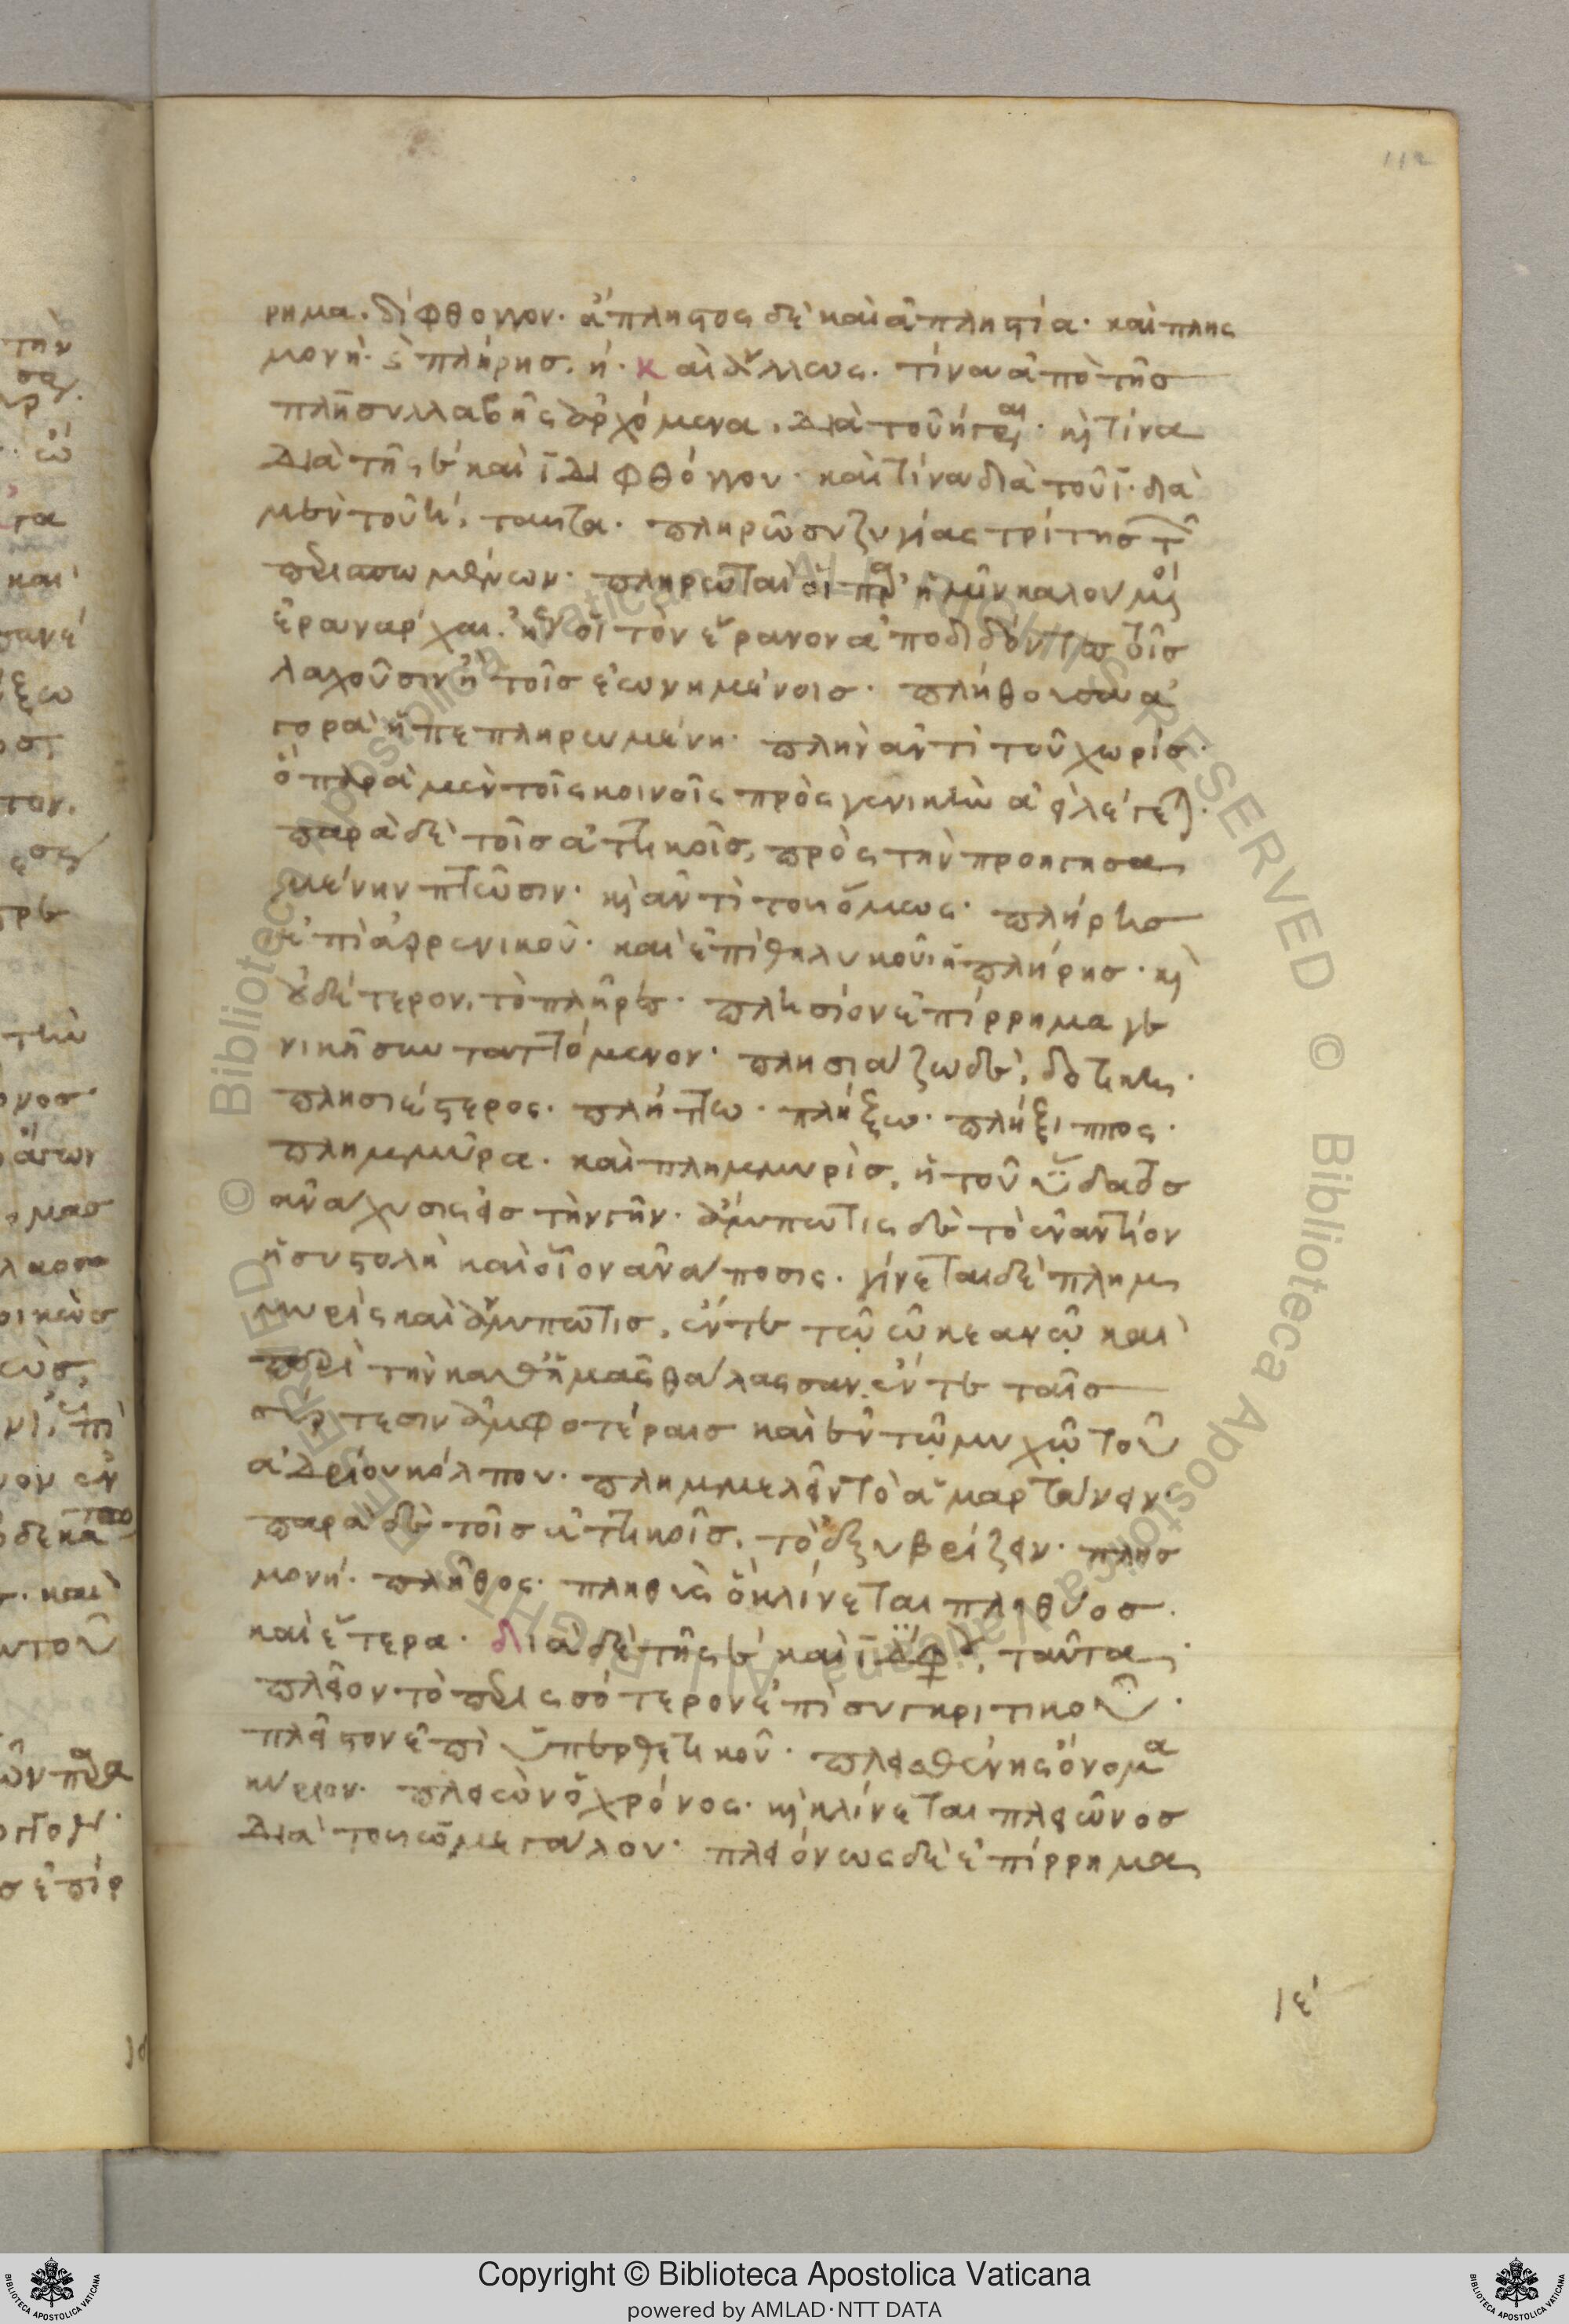 112
ρημα. δίφθογγον. ἄπληστος δὲ καὶ ἀπληστία. καὶ πλησ
μονή. ϛ πλήρης, η. Καὶ ἄλλως. τίνα ἀπὸ τῆς
πλη συλλαβῆς ἀρχόμενα, διὰ τοῦ η γράφεται. κ τίνα
διὰ τῆς ει καὶ ϊ διφθόγγου. καὶ τίνα διὰ τοῦ ϊ. διὰ
μὲν τοῦ η, ταῦτα. πληρῶ συζυγίας τρίτης τ
περισπωμένων. πληρωταὶ οἱ παρ' ἡμῖν καλούμενοι
ἐρανάρχαι. ἤγουν οἱ τὸν ἔρανον ἀποδιδόντες τοῖς
λαχοῦσιν ἢ τοῖς ἐωνημένοις. πλήθουσα ἀ
γορὰ ἡ πεπληρωμένη. πλὴν ἀντὶ τοῦ χωρίς.
ὃ παρὰ μὲν τοῖς κοινοῖς πρὸς γενικὴν ἀεὶ λέγεται.
παρὰ δὲ τοῖς ἀττικοῖς, πρὸς τὴν προηγησα
μένην πτῶσιν. κ ἀντὶ τοῦ ὅμως. πλήρης
ἐπὶ ἀρρενικοῦ. καὶ ἐπὶ θηλυκοῦ ἡ πλήρης. κ
οὐδέτερον, τὸ πλῆρες. πλησίον ἐπίρρημα γε
νικῇ συνταττόμενον. πλησιάζω δὲ, δοτικῇ.
πλησιέστερος. πλήττω. πλήξω. πλήξιππος.
πλημμύρα. καὶ πλημμυρὶς, ἡ τοῦ ὕδατος
ἀνάχυσις εἰς τὴν γῆν. ἄμπωτις δὲ τὸ ἐναντίον
ἡ συστολὴ καὶ οἷον ἀνάποσις. γίνεται δὲ πλημ
μυρὶς καὶ ἄμπωτις, ἔν τε τῷ ὠκεανῷ καὶ
περὶ τὴν καθ' ἡμᾶς θάλασσαν. ἔν τε ταῖς
σύρτεσιν ἀμφοτέραις καὶ ἐν τῷ μυχῷ τοῦ
ἀδρίου κόλπου. πλημμελεῖν τὸ ἁμαρτάνειν.
παρὰ δὲ τοῖς ἀττικοῖς, τὸ ἐξυβρίζειν. πλησ
μονή. πλῆθος. πληθὺς ὃ κλίνεται πληθύος.
καὶ ἕτερα. διὰ δὲ τῆς ει καὶ ϊ διφθόγγου, ταῦτα.
πλεῖον τὸ περισσότερον ἐπὶ συγκριτικοῦ.
πλεῖστον ἐπὶ ὑπερθετικοῦ. πλεισθένης ὄνομα
κύριον. πλειὼν ὁ χρόνος. κ κλίνεται πλειῶνος
διὰ τοῦ ω μεγάλου. πλειόνως δὲ ἐπίρρημα
ιε'
Copyright © Biblioteca Apostolica Vaticana
powered by AMLAD·NTT DATA